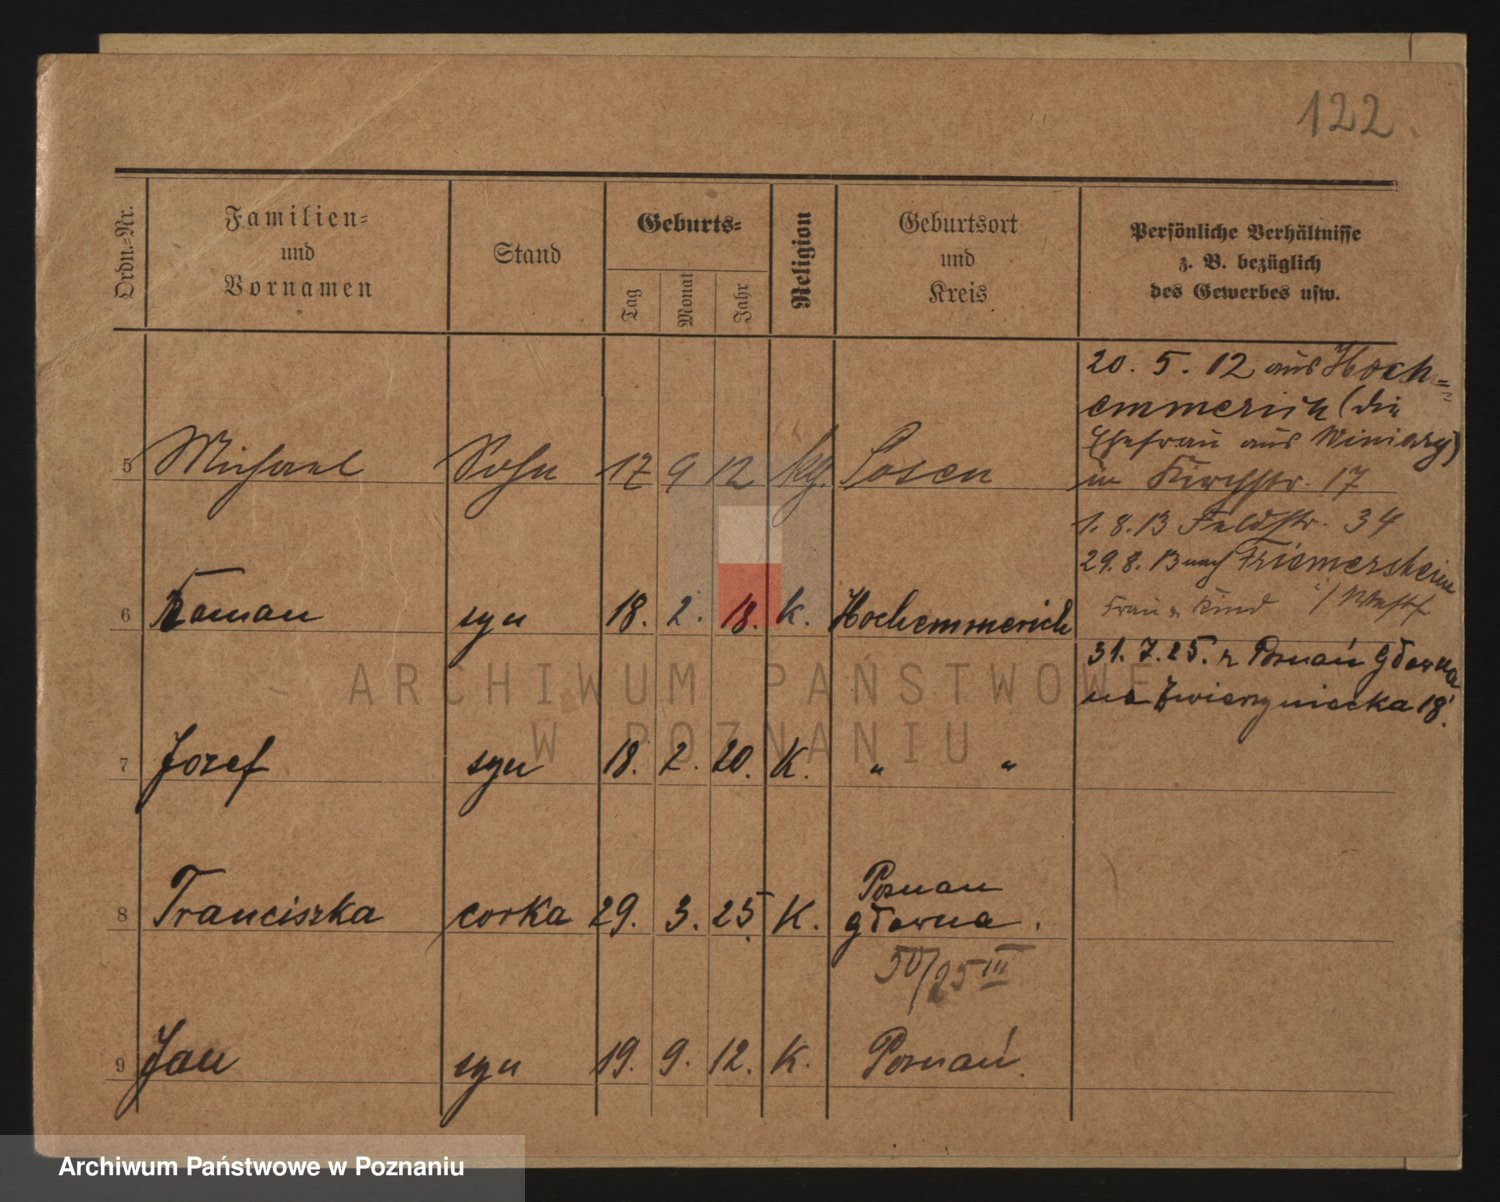 122
Ordn.=Nr.
Familien=
und
Vornamen
Stand
Geburts=
Tag
Monat
Jahr
Religion
Geburtsort
und
Kreis
Persönliche Verhältnisse
z. B. bezüglich
des Gewerbes usw.
20. 5. 12 aus Hoch=
emmerich (die
Ehefrau aus Winiary)
in Kirchstr. 17
5 Michael Sohn 17 9 12 kg. Posen
1. 8. 13 Feldstr. 34
29. 8. 13 nach Friemersheim
Frau u Kind i/ Westf
6 Roman syn 18. 2. 18. k. Hochemmerich
31. 7. 25. z Poznań Główna
na Zwierzyniecka 18.
7 Jozef syn 18. 2. 20. K. " "
8 Franciszka corka 29. 3. 25. K. Poznan
główna.
50/25 III
9 Jan syn 19. 9. 12. K. Poznań.
ARCHIWUM PAŃSTWOWE
W POZNANIU
Archiwum Państwowe w Poznaniu